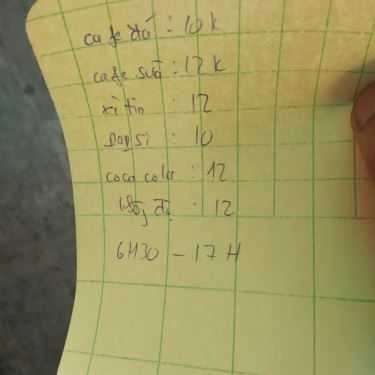 cafe đá : 10k
cafe sữa : 12k
xì tin : 12
pepsi : 10
coca cola : 12
: 12
6H30 - 17H